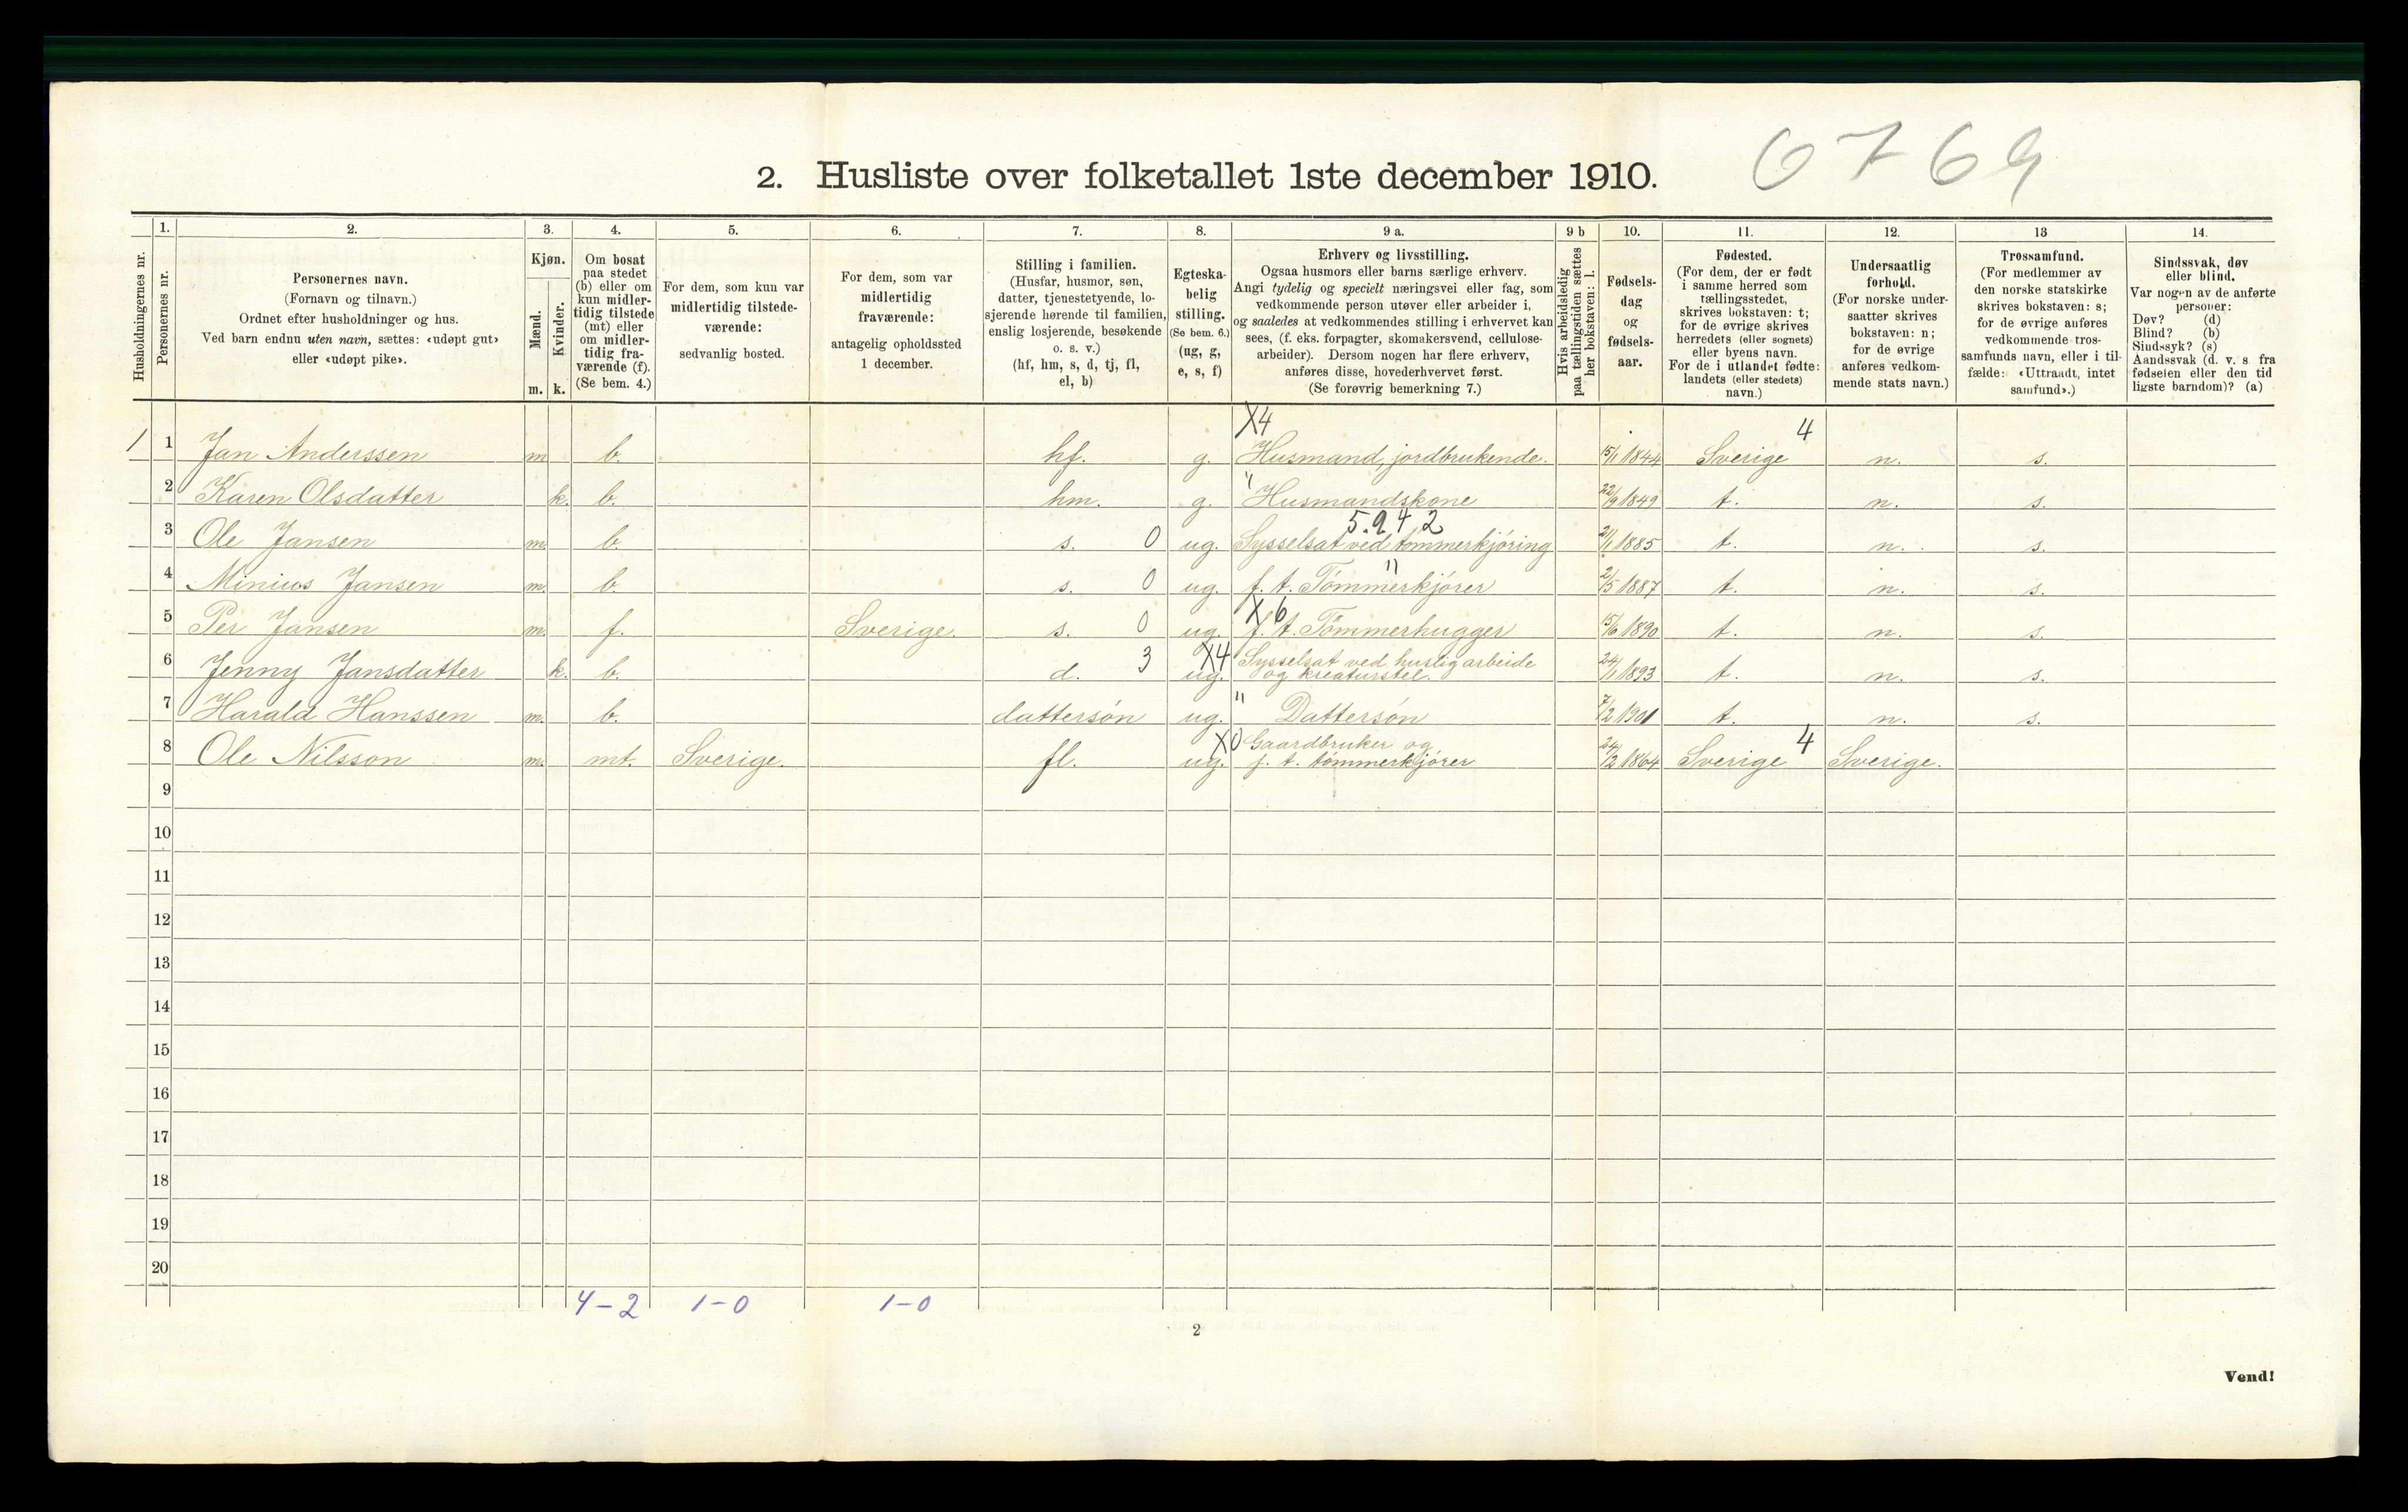 0769
2. Husliste over folketallet 1ste december 1910.
Husholdningernes nr.
1.
Personernes nr.
2.
Personernes navn.
(Fornavn og tilnavn.)
Ordnet efter husholdninger og hus.
Ved barn endnu uten navn, sættes: «udøpt gut»
eller «udøpt pike».
3.
Kjøn.
Mænd.
m.
Kvinder.
k.
4.
Om bosat
paa stedet
(b) eller om
kun midler-
tidig tilstede
(mt) eller
om midler-
tidig fra-
værende (f).
(Se bem. 4.)
5.
For dem, som kun var
midlertidig tilstede-
værende:
sedvanlig bosted.
6.
For dem, som var
midlertidig
fraværende:
antagelig opholdssted
1 december.
7.
Stilling i familien.
(Husfar, husmor, søn,
datter, tjenestetyende, lo-
sjerende hørende til familien,
enslig losjerende, besøkende
o. s. v.)
(hf, hm, s, d, tj, fl,
el, b)
8.
Egteska-
belig
stilling.
(Se bem. 6.)
(ug, g,
e, s, f)
9 a.
Erhverv og livsstilling.
Ogsaa husmors eller barns særlige erhverv.
Angi tydelig og specielt næringsvei eller fag, som
vedkommende person utøver eller arbeider i,
og saaledes at vedkommendes stilling i erhvervet kan
sees, (f. eks. forpagter, skomakersvend, cellulose-
arbeider). Dersom nogen har flere erhverv,
anføres disse, hovederhvervet først.
(Se forøvrig bemerkning 7.)
9 b
Hvis arbeidsledig
paa tællingstiden sættes
her bokstaven: l.
10.
Fødsels-
dag
og
fødsels-
aar.
11.
Fødested.
(For dem, der er født
i samme herred som
tællingsstedet,
skrives bokstaven: t;
for de øvrige skrives
herredets (eller sognets)
eller byens navn.
For de i utlandet fødte:
landets (eller stedets)
navn.)
12.
Undersaatlig
forhold.
(For norske under-
saatter skrives
bokstaven: n;
for de øvrige
anføres vedkom-
mende stats navn.)
13
Trossamfund.
(For medlemmer av
den norske statskirke
skrives bokstaven: s;
for de øvrige anføres
vedkommende tros-
samfunds navn, eller i til-
fælde: «Uttraadt, intet
samfund».)
14.
Sindssvak, døv
eller blind.
Var nogen av de anførte
personer:
Døv? (d)
Blind? (b)
Sindssyk? (s)
Aandssvak (d. v. s. fra
fødselen eller den tid-
ligste barndom)? (a)
X4 4
1 1 Jan Anderssen m b. hf. g. Husmand, jordbrukende. 15/1 1844 Sverige n. s.
2 Karen Olsdatter k. b. hm. g. " Husmandskone 22/9 1849 t. n. s.
5.942
3 Ole Jansen m. b. s. 0 ug. Sysselsat ved tømmerkjøring 21/1 1885 t. n. s.
"
4 Minius Jansen m. b. s. 0 ug. f. t. Tømmerkjører 2/5 1887 t. n. s.
X6
5 Per Jansen m. f. Sverige. s. 0 ug. f. t. Tømmerhugger 15/6 1890 t. n. s.
6 Jenny Jansdatter k. b. d. 3 ug. X4 Sysselsat ved huslig arbeide
og kreaturstel. 24/11 1893 t. n. s.
7 Harald Hanssen m. b. dattersøn ug. " Dattersøn 7/2 1901 t. n. s.
8 Ole Nilsson m. mt. Sverige. fl. ug. X0 Gaardbruker og
f. t. tømmerkjører 24/2 1864 Sverige 4 Sverige.
9
10
11
12
13
14
15
16
17
18
19
20
4-2 1-0 1-0
2
Vend!